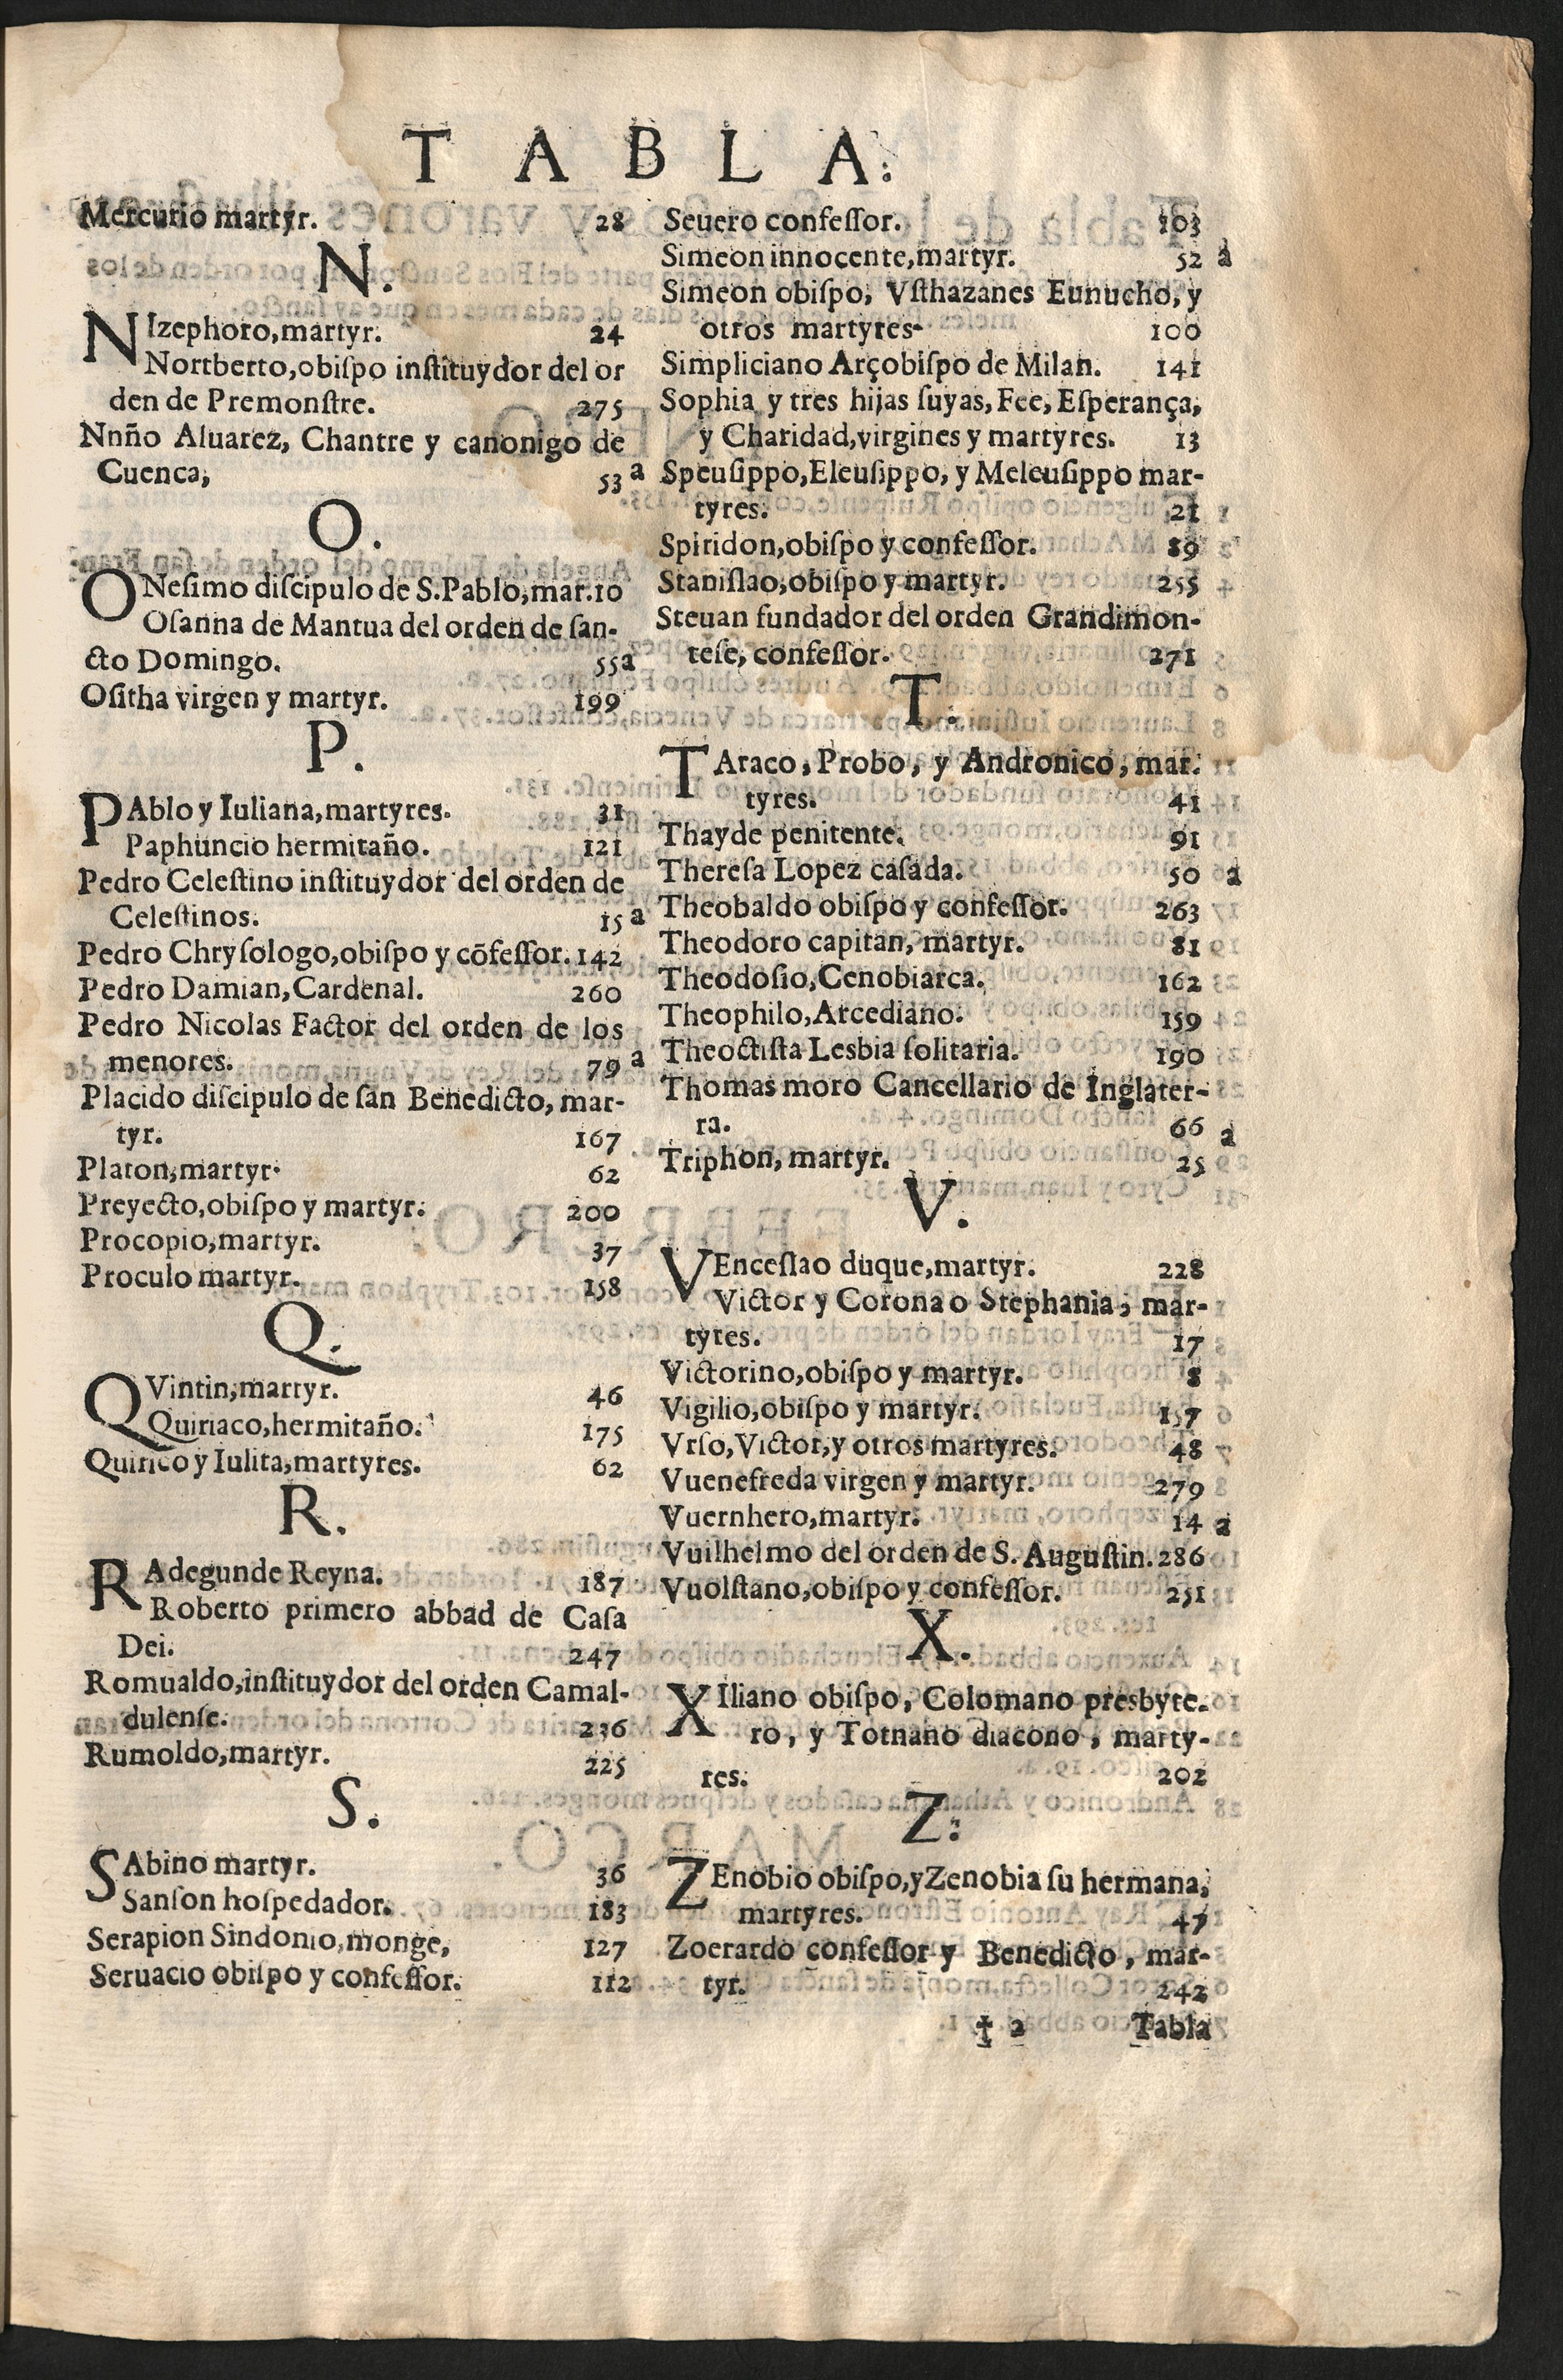 TABLA:
Mercurio martyr. 28
N.
NIzephoro,martyr. 24
Nortberto,obiſpo inſtituydor del or
den de Premonſtre. 275
Nnño Aluarez, Chantre y canonigo de
Cuenca, 53 a
O.
ONeſimo diſcipulo de S.Pablo,mar.10
Oſanna de Mantua del orden de ſan-
cto Domingo. 55a
Oſitha virgen y martyr. 199
P.
PAblo y Iuliana,martyres. 31
Paphuncio hermitaño. 121
Pedro Celeſtino inſtituydor del orden de
Celeſtinos. 15 a
Pedro Chryſologo,obiſpo y cõfeſſor. 142
Pedro Damian,Cardenal. 260
Pedro Nicolas Factor del orden de los
menores. 79 a
Placido diſcipulo de ſan Benedicto, mar-
tyr. 167
Platon,martyr. 62
Preyecto,obiſpo y martyr. 200
Procopio,martyr. 37
Proculo martyr. 158
Q.
QVintin,martyr. 46
Quiriaco,hermitaño. 175
Quirico y Iulita,martyres. 62
R.
RAdegunde Reyna. 187
Roberto primero abbad de Caſa
Dei. 247
Romualdo,inſtituydor del orden Camal-
dulenſe. 236
Rumoldo,martyr. 225
S.
SAbino martyr. 36
Sanſon hoſpedador. 183
Serapion Sindonio,monge, 127
Seruacio obiſpo y confeſſor. 112
Seuero confeſſor. 103
Simeon innocente,martyr. 52 a
Simeon obiſpo, Vſthazanes Eunucho, y
otros martyres. 100
Simpliciano Arçobiſpo de Milan. 141
Sophia y tres hijas ſuyas, Fee, Eſperança,
y Charidad,virgines y martyres. 13
Speuſippo,Eleuſippo, y Meleuſippo mar-
tyres. 21
Spiridon,obiſpo y confeſſor. 89
Staniſlao,obiſpo y martyr. 255
Steuan fundador del orden Grandimon-
teſe, confeſſor. 271
T.
TAraco, Probo, y Andronico, mar.
tyres. 41
Thayde penitente. 91
Thereſa Lopez caſada. 50 a
Theobaldo obiſpo y confeſſor. 263
Theodoro capitan, martyr. 81
Theodoſio,Cenobiarca. 162
Theophilo,Arcediano. 159
Theoctiſta Lesbia ſolitaria. 190
Thomas moro Cancellario de Inglater-
ra. 66 a
Triphon, martyr. 25
V.
VEnceſlao duque,martyr. 228
Victor y Corona o Stephania, mar-
tyres. 17
Victorino,obiſpo y martyr. 8
Vigilio,obiſpo y martyr. 157
Vrſo,Victor,y otros martyres. 48
Vuenefreda virgen y martyr. 279
Vuernhero,martyr. 14 a
Vuilhelmo del orden de S. Auguſtin. 286
Vuolſtano,obiſpo y confeſſor. 251
X.
XIliano obiſpo, Colomano presbyte-
ro, y Totnano diacono, marty-
res. 202
Z.
ZEnobio obiſpo,y Zenobia ſu hermana,
martyres. 47
Zoerardo confeſſor y Benedicto, mar-
tyr. 242
† 2 Tabla